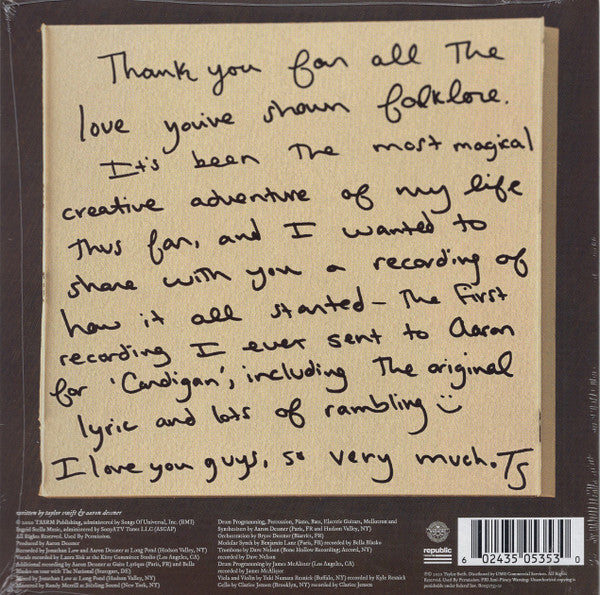 Thank you for all the
love you've shown folklore.
It's been the most magical
creative adventure of my life
thus far, and I wanted to
share with you a recording of
how it all started – the first
recording I ever sent to Aaron
for 'Cardigan', including the original
lyric and lots of rambling
I love you guys, so very much. TS
written by taylor swift & aaron dessner
© 2020 TASRM Publishing, administered by Songs Of Universal, Inc. (BMI)
Ingrid Stella Music, administered by Sony/ATV Tunes LLC (ASCAP)
All Rights Reserved. Used By Permission.
Produced by Aaron Dessner
Recorded by Jonathan Low and Aaron Dessner at Long Pond (Hudson Valley, NY)
Vocals recorded by Laura Sisk at the Kitty Committee Studio (Los Angeles, CA)
Additional recording by Aaron Dessner at Gaite Lyrique (Paris, FR) and Bella Blasko
on tour with The National (Stuttgart, DE)
Mixed by Jonathan Low at Long Pond (Hudson Valley, NY)
Mastered by Randy Merrill at Sterling Sound (New York, NY)
Drum Programming, Percussion, Piano, Bass, Electric Guitars, Mellotron and
Synthesizers by Aaron Dessner (Paris, FR and Hudson Valley, NY)
Orchestration by Bryce Dessner (Biarritz, FR)
Modular Synth by Benjamin Lanz (Paris, FR) recorded by Bella Blasko
Trombone by Dave Nelson (Bone Hollow Recording, Accord, NY)
recorded by Dave Nelson
Drum Programming by James McAlister (Los Angeles, CA)
recorded by James McAlister
Viola and Violin by Yuki Numata Resnick (Buffalo, NY) recorded by Kyle Resnick
Cello by Clarice Jensen (Brooklyn, NY) recorded by Clarice Jensen
republic
6 02435 05353 0
℗© 2020 Taylor Swift.